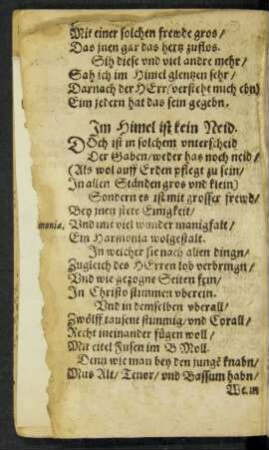 Mit einer solchen frewde gros /
Das jnen gar das hertz zuflos.
Sih diese vnd viel andre mehr /
Sah ich im Himel glentzen sehr /
Darnach der HErr / versteht mich ebn)
Ein jedern hat das sein gegebn.
Im Himel ist kein Neid.
DOch ist in solchem vnterscheid
Der Gaben / weder haß noch neid /
(Als wol auff Erden pflegt zu sein /
In allen Ständen gros vnd klein)
Sondern es ist mit grosser frewd /
Bey jnen stete Einigkeit /
monia. Vnd mit viel wunder manigfalt /
Ein Harmonia wolgestalt.
In welcher sie nach allen dingn /
Zugleich des HErren lob verbringn /
Vnd wie gezogne Seiten sein /
In Christo stimmen vberein.
Vnd in demselben vberall /
Zwölff tausent stimmig / vnd Corall /
Recht ineinander fügen woll /
Mit eitel Fusen im B Moll.
Denn wie man bey den jungē knabn /
Mus Alt / Tenor / vnd Bassum habn /